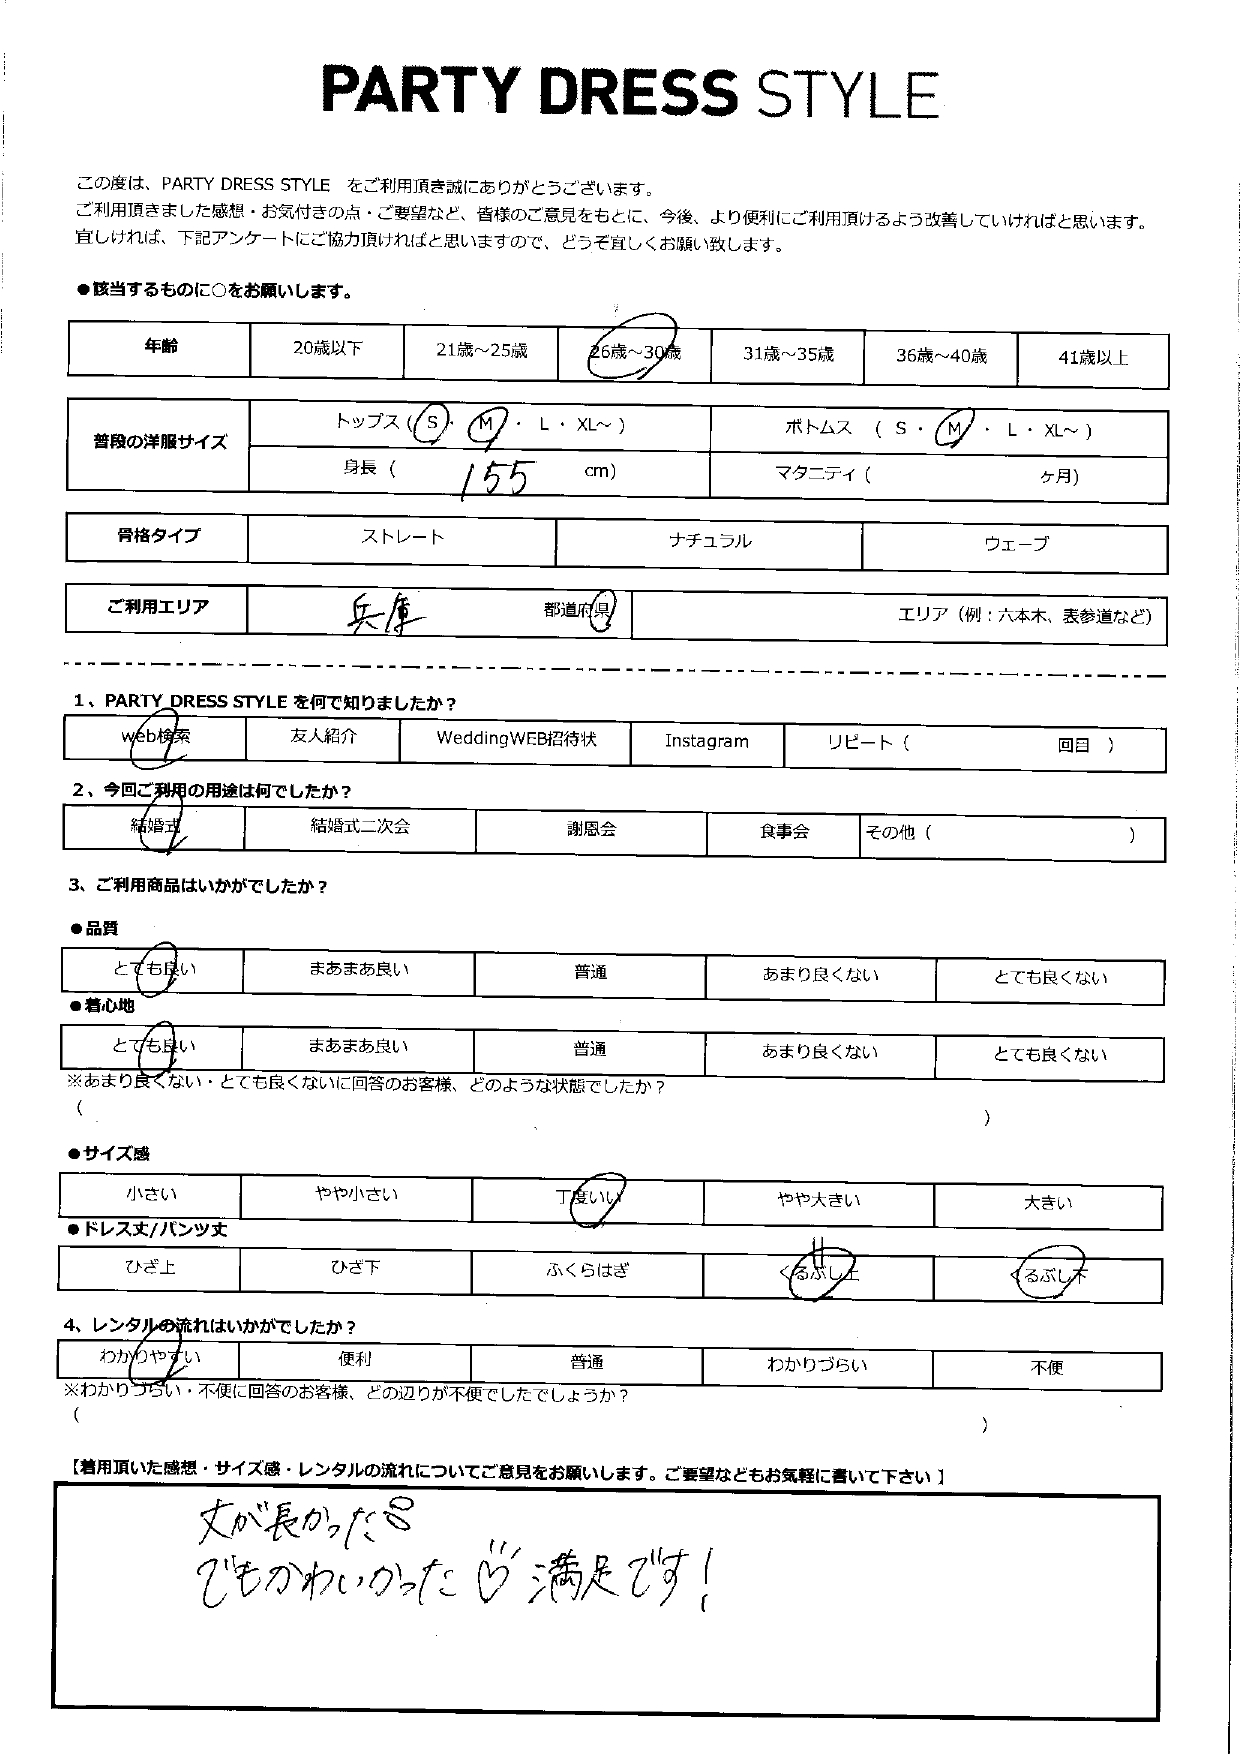 PARTY DRESS STYLE
この度は、PARTY DRESS STYLE をご利用頂き誠にありがとうございます。
ご利用頂きました感想・お気付きの点・ご要望など、皆様のご意見をもとに、今後、より便利にご利用頂けるよう改善していければと思います。
宜しければ、下記アンケートにご協力頂ければと思いますので、どうぞ宜しくお願い致します。
●該当するものに○をお願いします。
年齢 20歳以下 21歳～25歳 26歳～30歳 31歳～35歳 36歳～40歳 41歳以上
普段の洋服サイズ トップス ( S ・ M ・ L ・ XL～ ) ボトムス ( S ・ M ・ L ・ XL～ )
身長 ( 155 cm) マタニティ ( ヶ月)
骨格タイプ ストレート ナチュラル ウェーブ
ご利用エリア 兵庫 都道府県 エリア（例：六本木、表参道など）
1、PARTY DRESS STYLE を何で知りましたか？
web検索 友人紹介 WeddingWEB招待状 Instagram リピート ( 回目 )
2、今回ご利用の用途は何でしたか？
結婚式 結婚式二次会 謝恩会 食事会 その他 ( )
3、ご利用商品はいかがでしたか？
●品質
とても良い まあまあ良い 普通 あまり良くない とても良くない
●着心地
とても良い まあまあ良い 普通 あまり良くない とても良くない
※あまり良くない・とても良くないに回答のお客様、どのような状態でしたか？
( )
●サイズ感
小さい やや小さい 丁度いい やや大きい 大きい
●ドレス丈/パンツ丈
ひざ上 ひざ下 ふくらはぎ くるぶし上 くるぶし下
4、レンタルの流れはいかがでしたか？
わかりやすい 便利 普通 わかりづらい 不便
※わかりづらい・不便に回答のお客様、どの辺りが不便でしたでしょうか？
( )
【着用頂いた感想・サイズ感・レンタルの流れについてご意見をお願いします。ご要望などもお気軽に書いて下さい】
丈が長かった
でもかわいかった♡満足です！